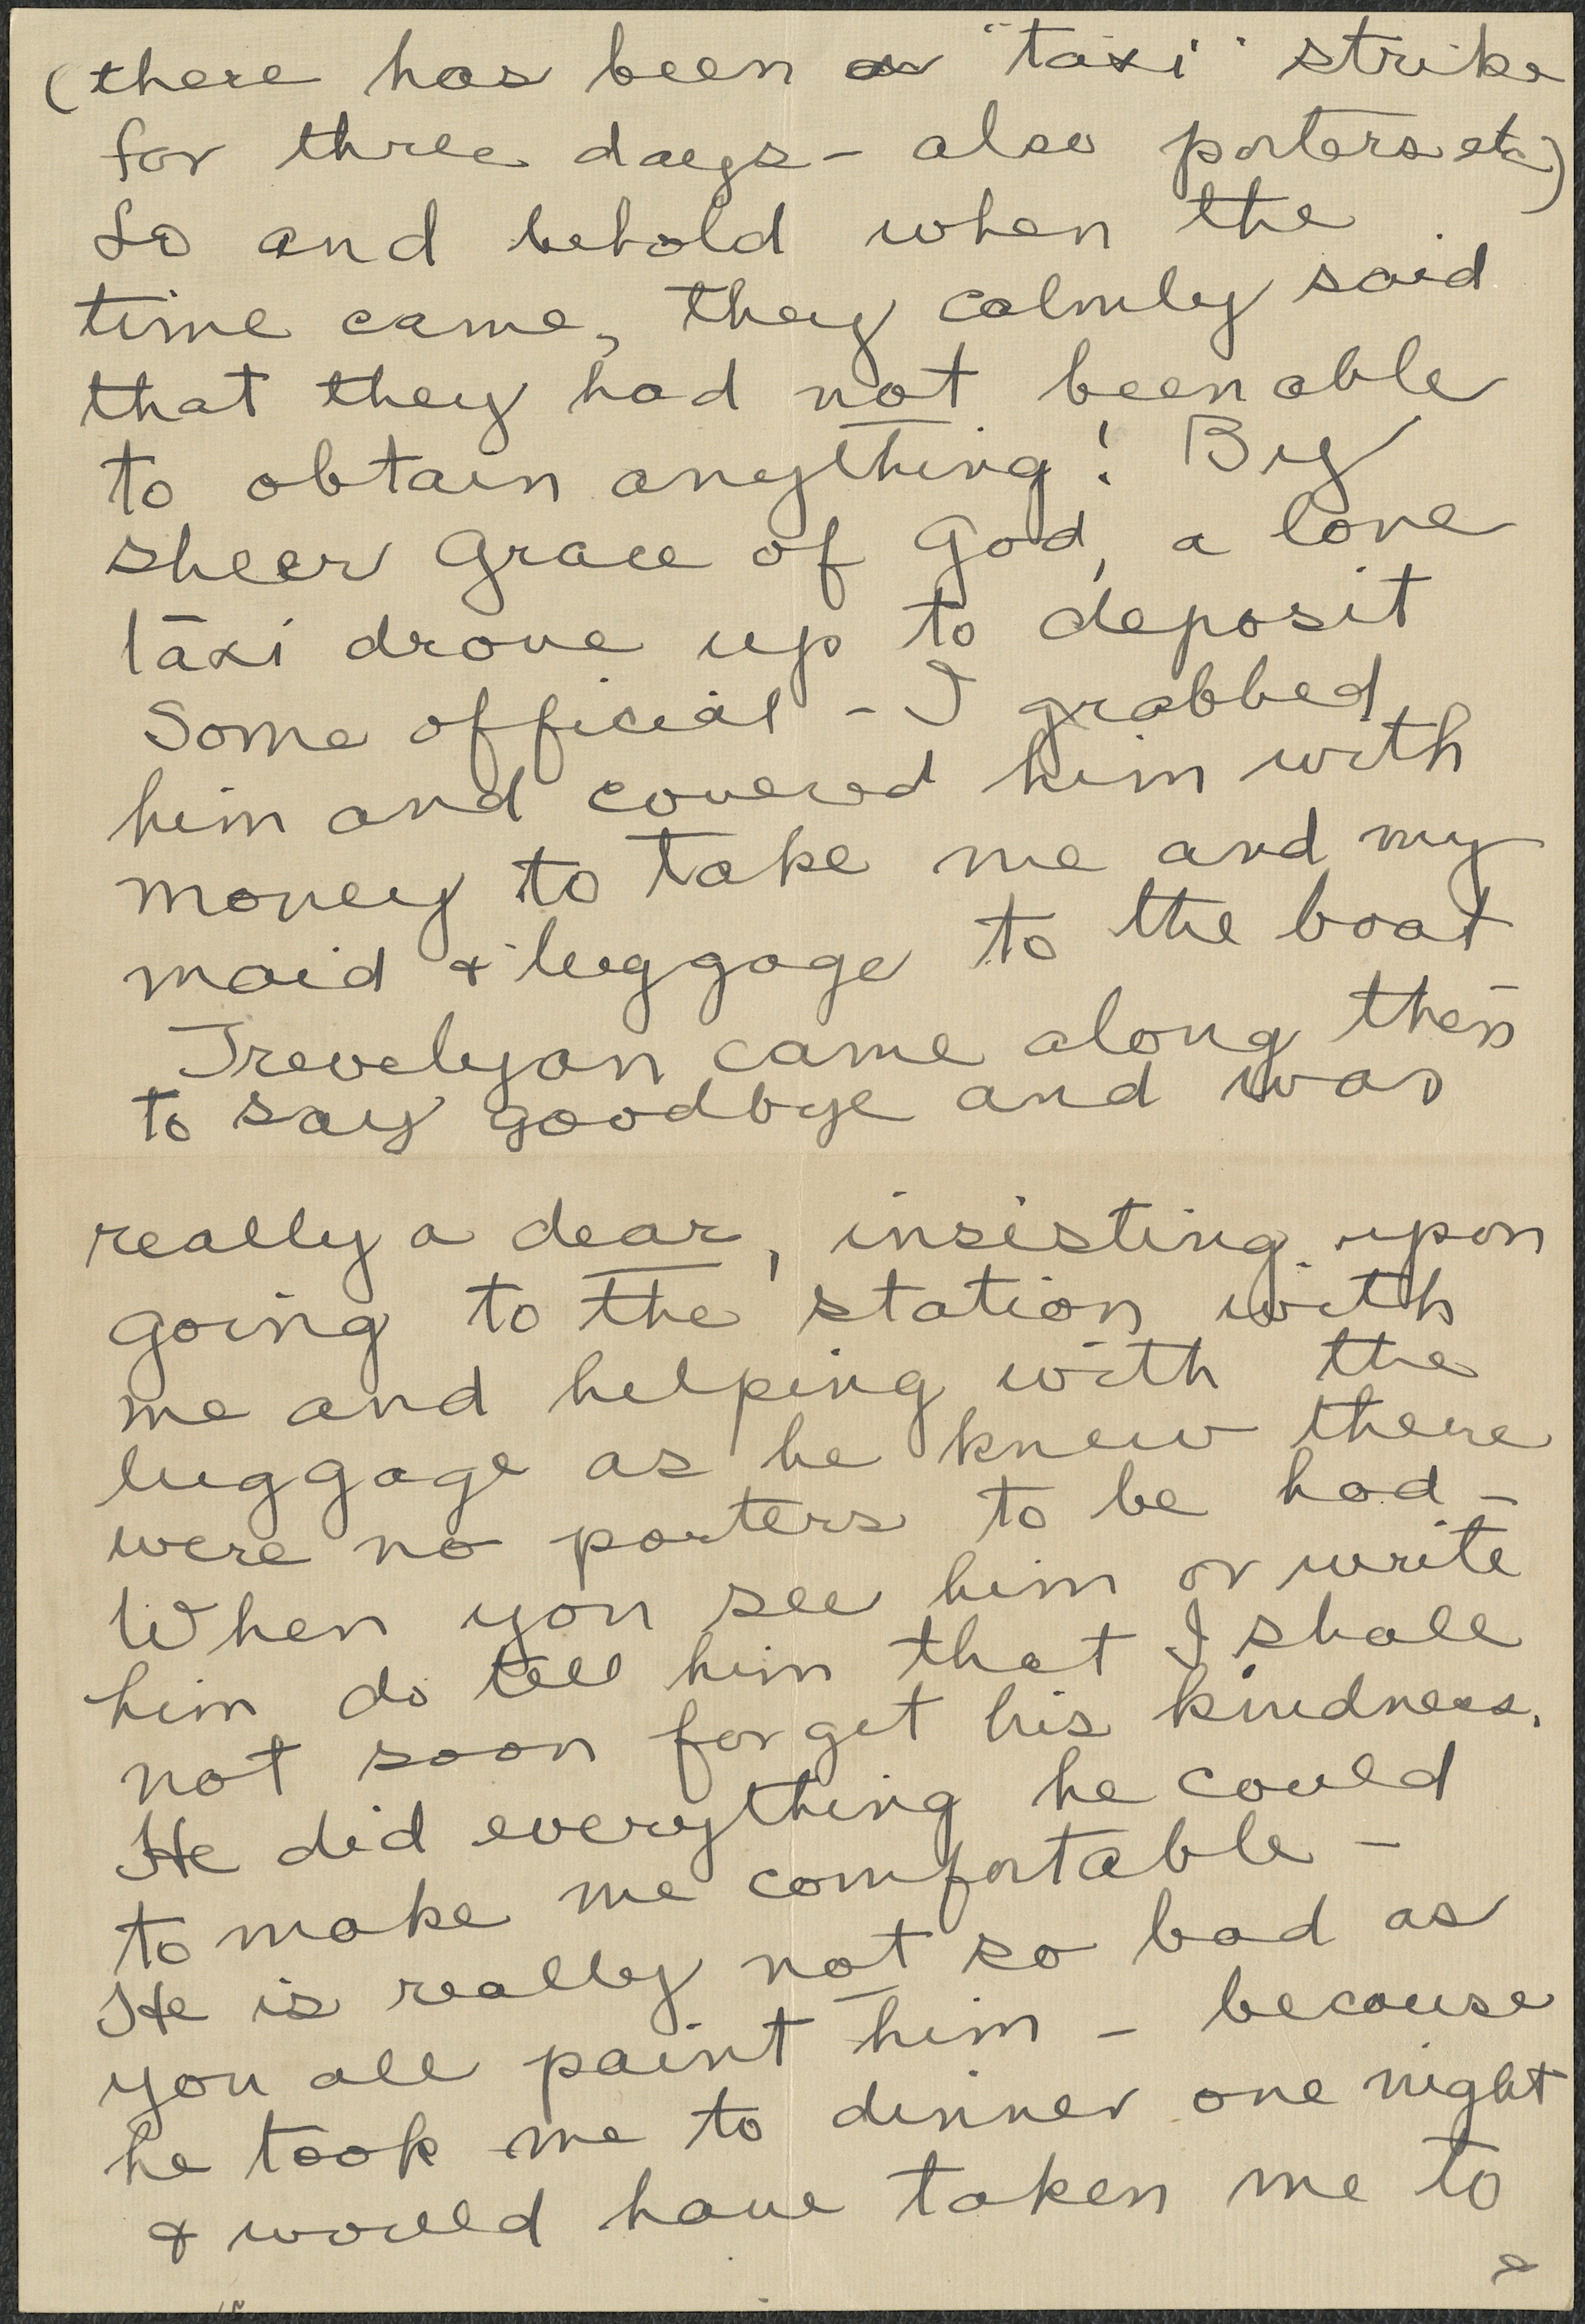 (there has been a "taxi" strike
for three days - also porters etc)
Lo and behold when the
time came, they calmly said
that they had not been able
to obtain anything! By
sheer Grace of God, a lone
taxi drove up to deposit
Some official - I grabbed
him and covered him with
money to take me and my
maid & luggage to the boat
Trevelyan came along then
to say goodbye and was
really a dear, insisting upon
going to the station with
me and helping with the
luggage as he knew there
were no porters to be had -
When you see him or write
him do tell him that I shall
not soon forget his kindness.
He did everything he could
to make me comfortable -
He is really not so bad as
you all paint him - because
he took me to dinner one night
& would have taken me to